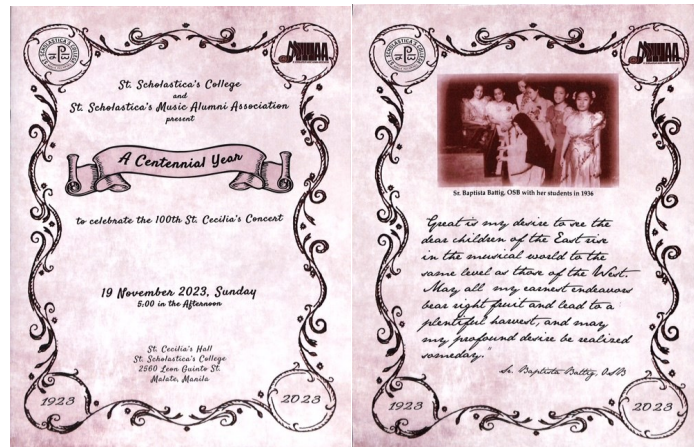 St. Scholastica's College
and
St. Scholastica's Music Alumni Association
present
A Centennial Year
to celebrate the 100th St. Cecilia's Concert
19 November 2023, Sunday
5:00 in the Afternoon
St. Cecilia's Hall
St. Scholastica's College
2560 Leon Guinto St.
Malate, Manila
1923
2023
Sr. Baptista Battig, OSB with her students in 1936
Great is my desire to see the
dear children of the East rise
in the musical world to the
same level as those of the West.
May all my earnest endeavors
bear right fruit and lead to a
plentiful harvest, and may
my profound desire be realized
someday."
Sr. Baptista Battig, OSB
1923
2023